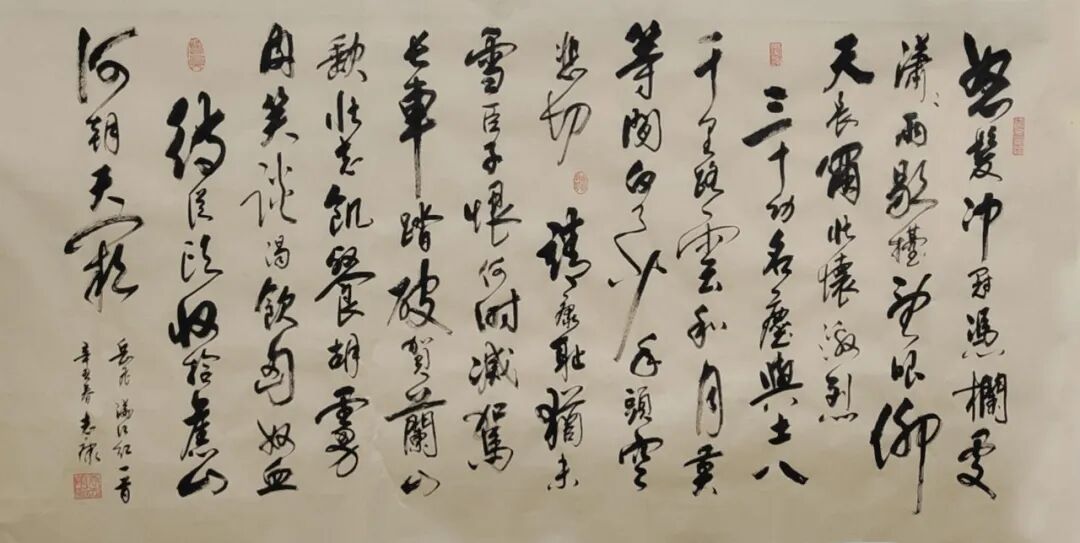 怒髮冲冠憑欄處
瀟瀟雨歇擡望眼仰
天長嘯壯懷激烈
三十功名塵與土八
千里路雲和月莫
等閑白了少年頭空
悲切 靖康耻猶未
雪臣子恨何時滅駕
長車踏破賀蘭山
缺壯志飢餐胡虜
肉笑談渴飲匈奴血
待從頭收拾舊山
河朝天闕
岳飛滿江紅一首
辛丑春